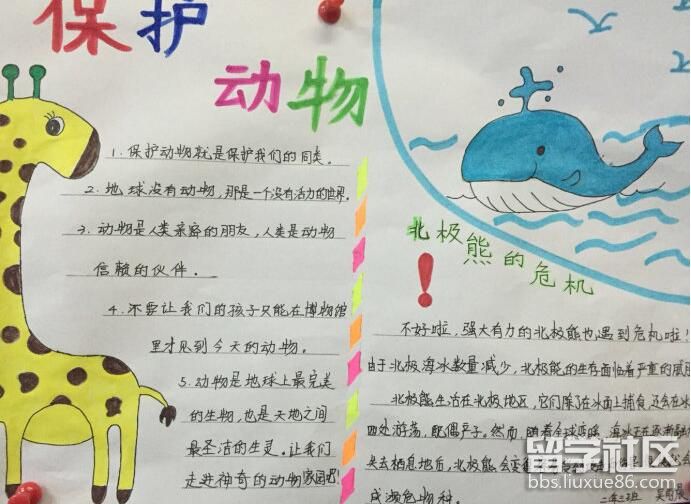 保护
动物
1. 保护动物就是保护我们的同类。
2. 地球没有动物,那是一个没有活力的世界。
3. 动物是人类亲密的朋友,人类是动物
信赖的伙伴。
4. 不要让我们的孩子只能在博物馆
里才见到今天的动物。
5. 动物是地球上最完美
的生物,也是天地之间
最圣洁的生灵。让我们
走进神奇的动物家园吧
北极熊的危机
!
不好啦,强大有力的北极熊也遇到危机啦!
由于北极海冰数量减少,北极熊的生存面临着严重的威胁
北极熊生活在北极地区,它们除了在冰面上捕食,还会在冰
四处游荡,配偶产子。然而,随着全球变暖,海冰正在逐渐融
失去栖息地后,北极熊会变得
成濒危物种。
二班
留学社区
bbs.liuxue86.com